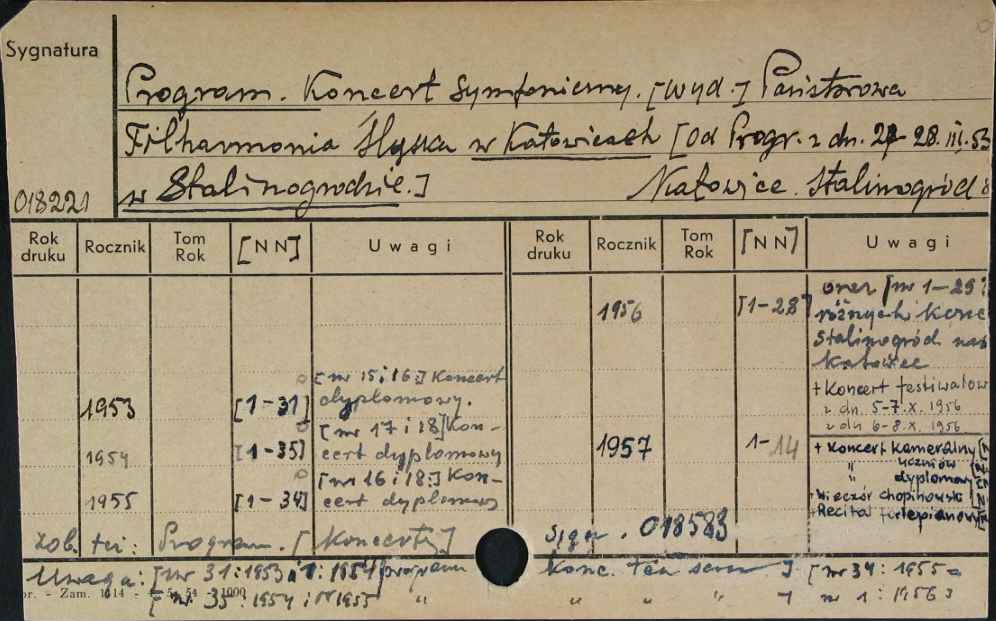 Sygnatura
Program. Koncert symfoniczny. [Wyd.] Państwowa
Filharmonia Śląska w Katowicach [od Progr. z dn. 27-28.III.53
w Stalinogrodzie.] Katowice. Stalinogród
018221
Rok druku Rocznik Tom Rok [NN] Uwagi Rok druku Rocznik Tom Rok [NN] Uwagi
1956 [1-28] oraz [nr 1-25
różnych konc
Stalinogród nas
Katowice
[nr 15 i 16] Koncert + Koncert festiwalow
1953 [1-31] dyplomowy. z dn. 5-7.X.1956
[nr 17 i 18] Kon- z dn 6-8.X.1956
1954 [1-35] cert dyplomowy 1957 1-14 + Koncert kameralny [N
[nr 16 i 18:] Kon- " uczniów
" dyplomowy
1955 [1-34] cert dyplomowy + Wieczór chopinowski [N
+ Recital fortepianowy
zob. też: Program. [Koncerty] Sygn. 018583
Uwaga: [nr 31:1953 i 1:1954 program Konc. ten sam] [nr 34: 1955 =
- Zam. 1114 - 54 - 1000
[nr. 35:1954 i 1955 " " " " ] nr 1: 1956]